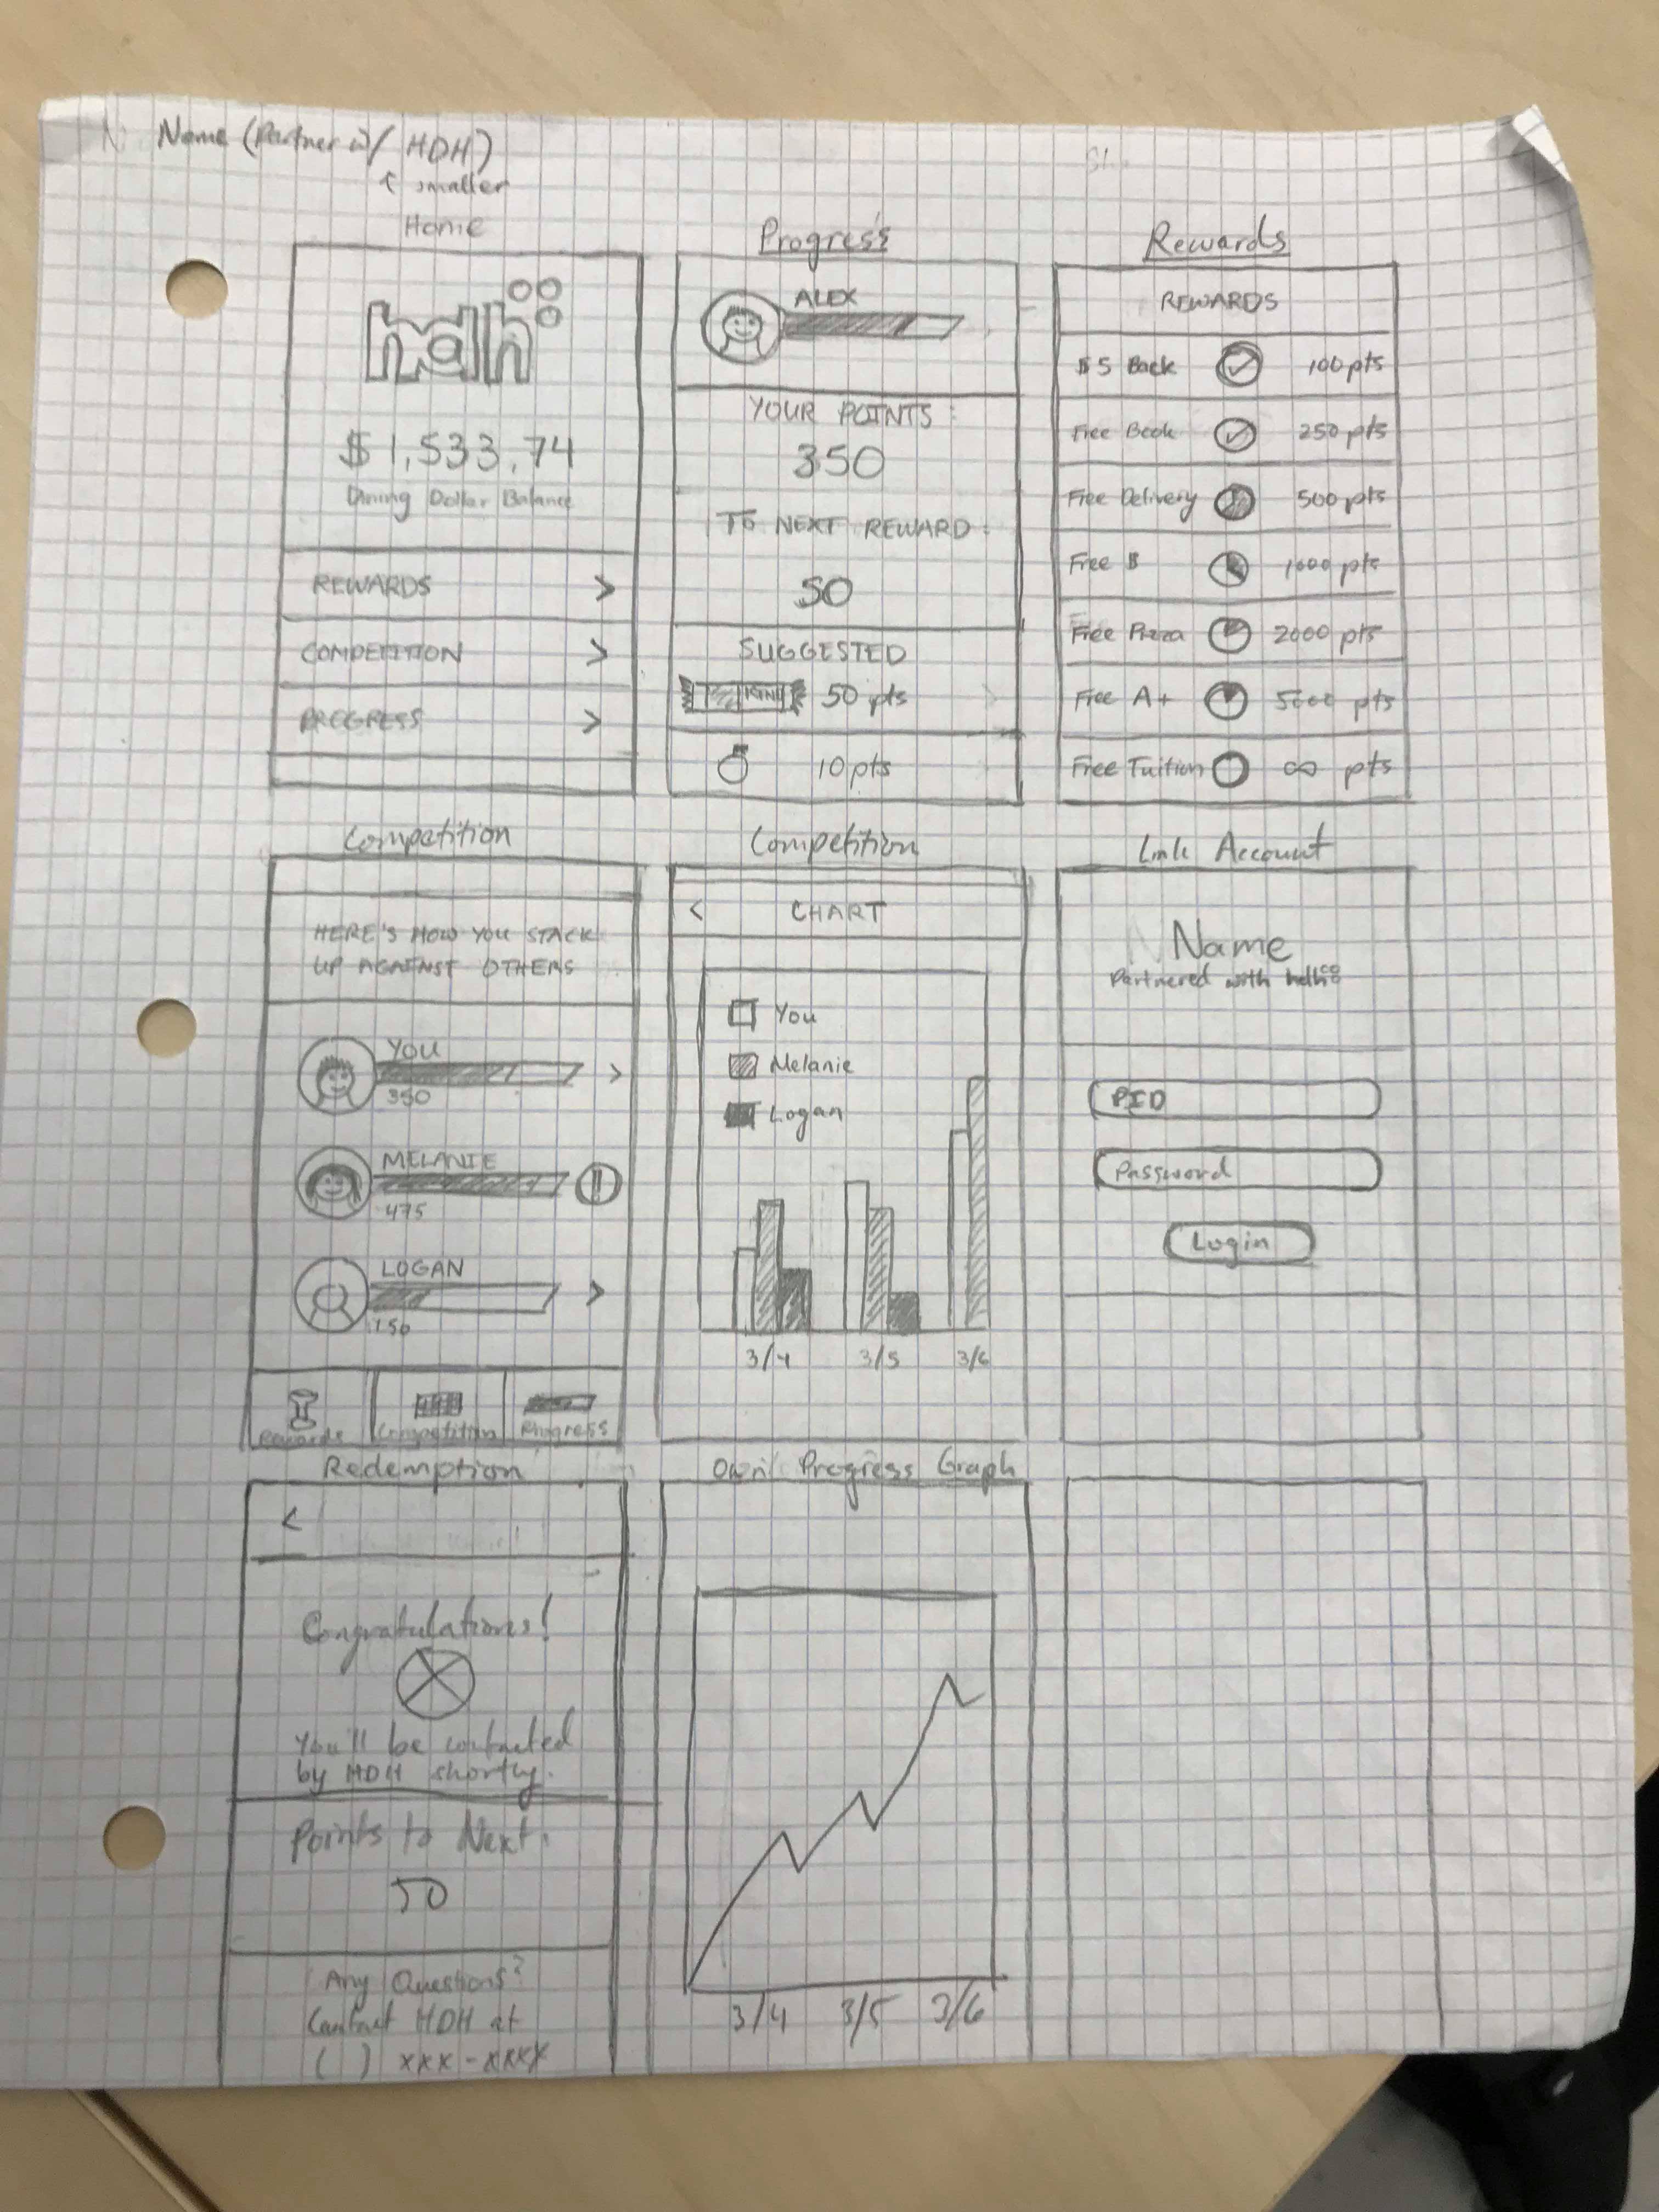 Name (Partner w/ HDH)
↑ smaller
Home
hdh
$1,533.74
Dining Dollar Balance
REWARDS >
COMPETITION >
PROGRESS >
Progress
ALEX
YOUR POINTS:
350
TO NEXT REWARD:
50
SUGGESTED
KIND 50 pts
10 pts
Rewards
REWARDS
$5 Back 100 pts
Free Book 250 pts
Free Delivery 500 pts
Free B 1000 pts
Free Pizza 2000 pts
Free A+ 5000 pts
Free Tuition ∞ pts
Competition
HERE'S HOW YOU STACK
UP AGAINST OTHERS
YOU
350
>
MELANIE
475
LOGAN
150
>
Rewards Competition Progress
Competition
< CHART
You
Melanie
Logan
3/4 3/5 3/6
Link Account
Name
Partnered with hdh
PID
Password
Login
Redemption
<
Congratulations!
You'll be contacted
by HDH shortly.
Points to Next:
50
Any Questions?
Contact HDH at
( ) xxx-xxxx
Own Progress Graph
3/4 3/5 3/6